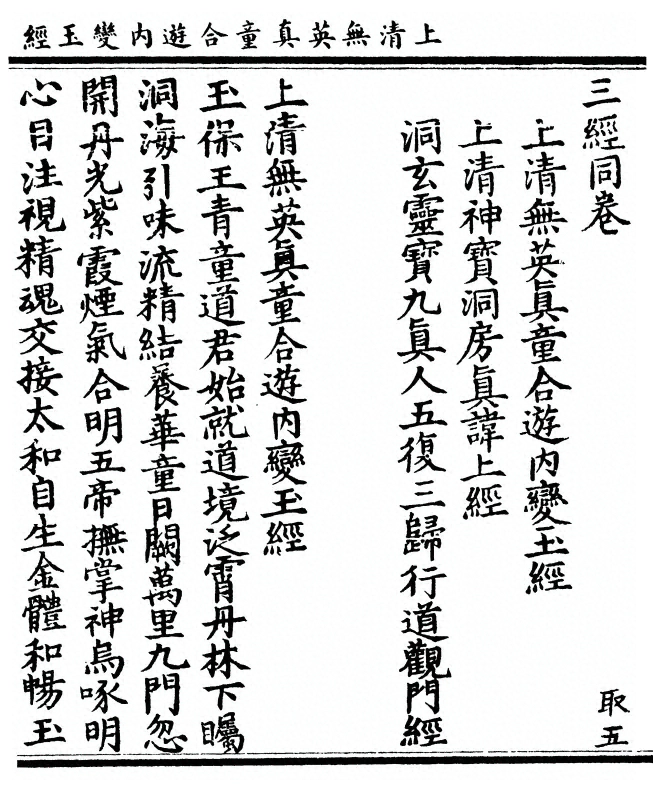 上清無英真童合遊內變玉經
三經同卷
取五
上清無英眞童合遊内變玉經
上清神寶洞房眞諱上經
洞玄靈寶九眞人五復三歸行道觀門經
上清無英眞童合遊内變玉經
玉保王青童道君始就道境泛霄丹林下矚
洞海引味流精結養華童日闕萬里九門忽
開丹光紫霞煙氣合明五帝撫掌神烏啄明
心目注視精魂交接太和自生金體和暢玉